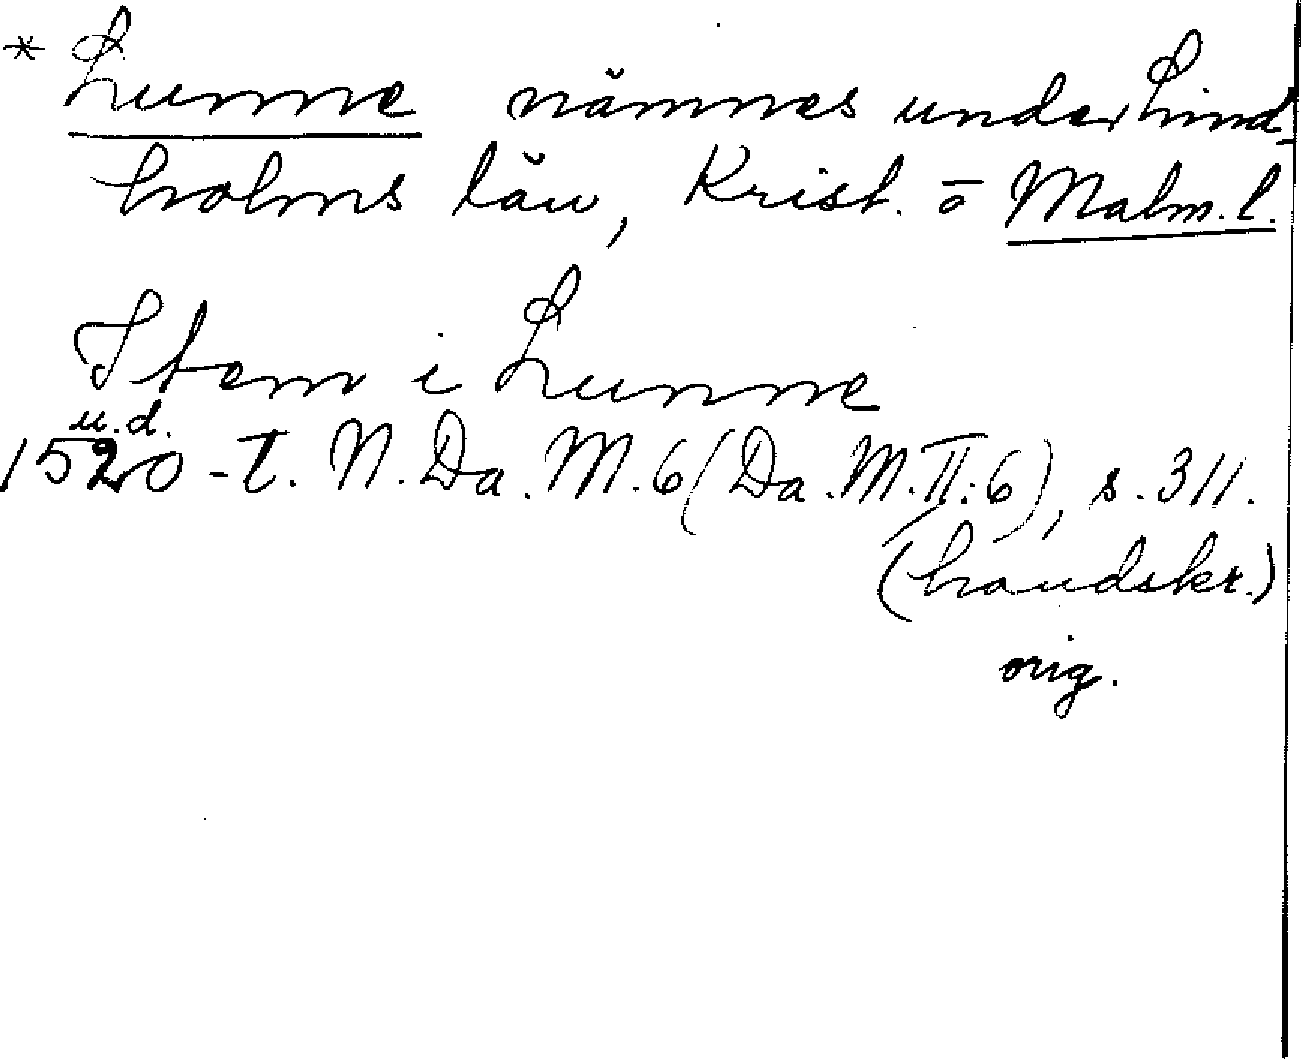 * Lunne nämnes under Lind-
holms län, Krist. o Malm. l.
Item i Lunne
u.d.
1520-t. N. Da. M. 6 (Da. M. II: 6), s. 311.
(handskr.)
orig.